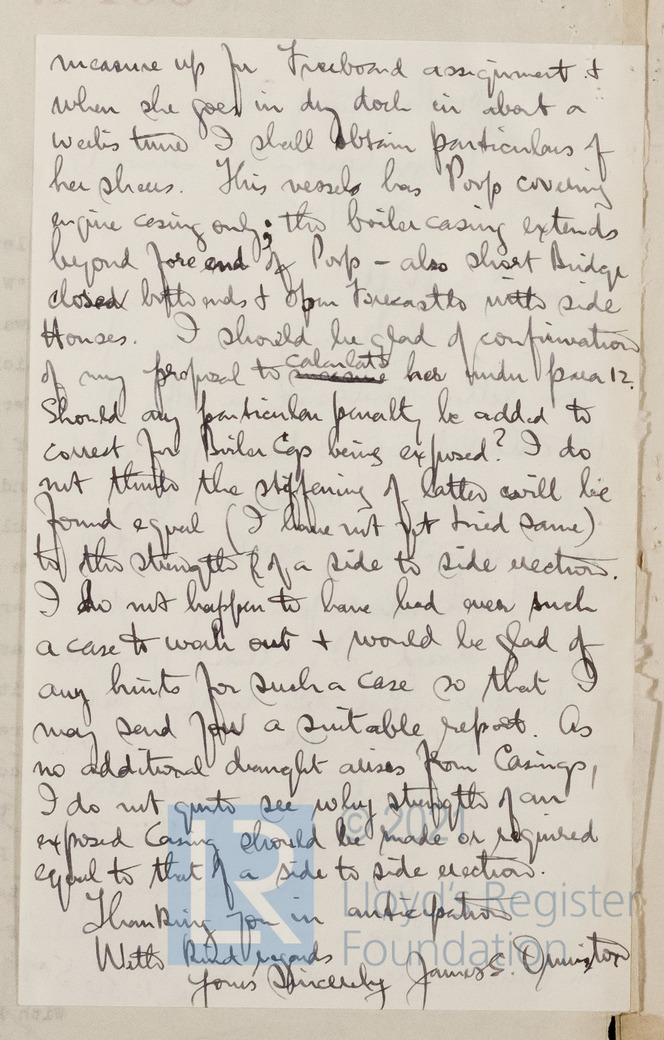 measure up for Freeboard assignment &
when she goes in dry dock in about a
weeks time I shall obtain particulars of
her sheer. This vessels has Poop covering
engine casing only; the boiler casing extends
beyond fore end of Poop – also short Bridge
closed both ends & open Forecastle with side
Houses. I should be glad of confirmation
of my proposal to measure calculate her under para 12.
Should any particular penalty be added to
correct for Boiler Csg being exposed? I do
not think the stiffening of latter will be
found equal (I have not yet tried same)
to the strength of a side to side erection.
I do not happen to have had ever such
a case to work out & would be glad of
any hints for such a case so that I
may send you a suitable report. As
no additional draught arises from Casings,
I do not quite see why strength of an
exposed Casing should be made or required
equal to that of a side to side erection.
Thanking you in anticipation
With kind regards
Yours Sincerely James S. Ormiston
LR
© 2021
Lloyd's Register
Foundation